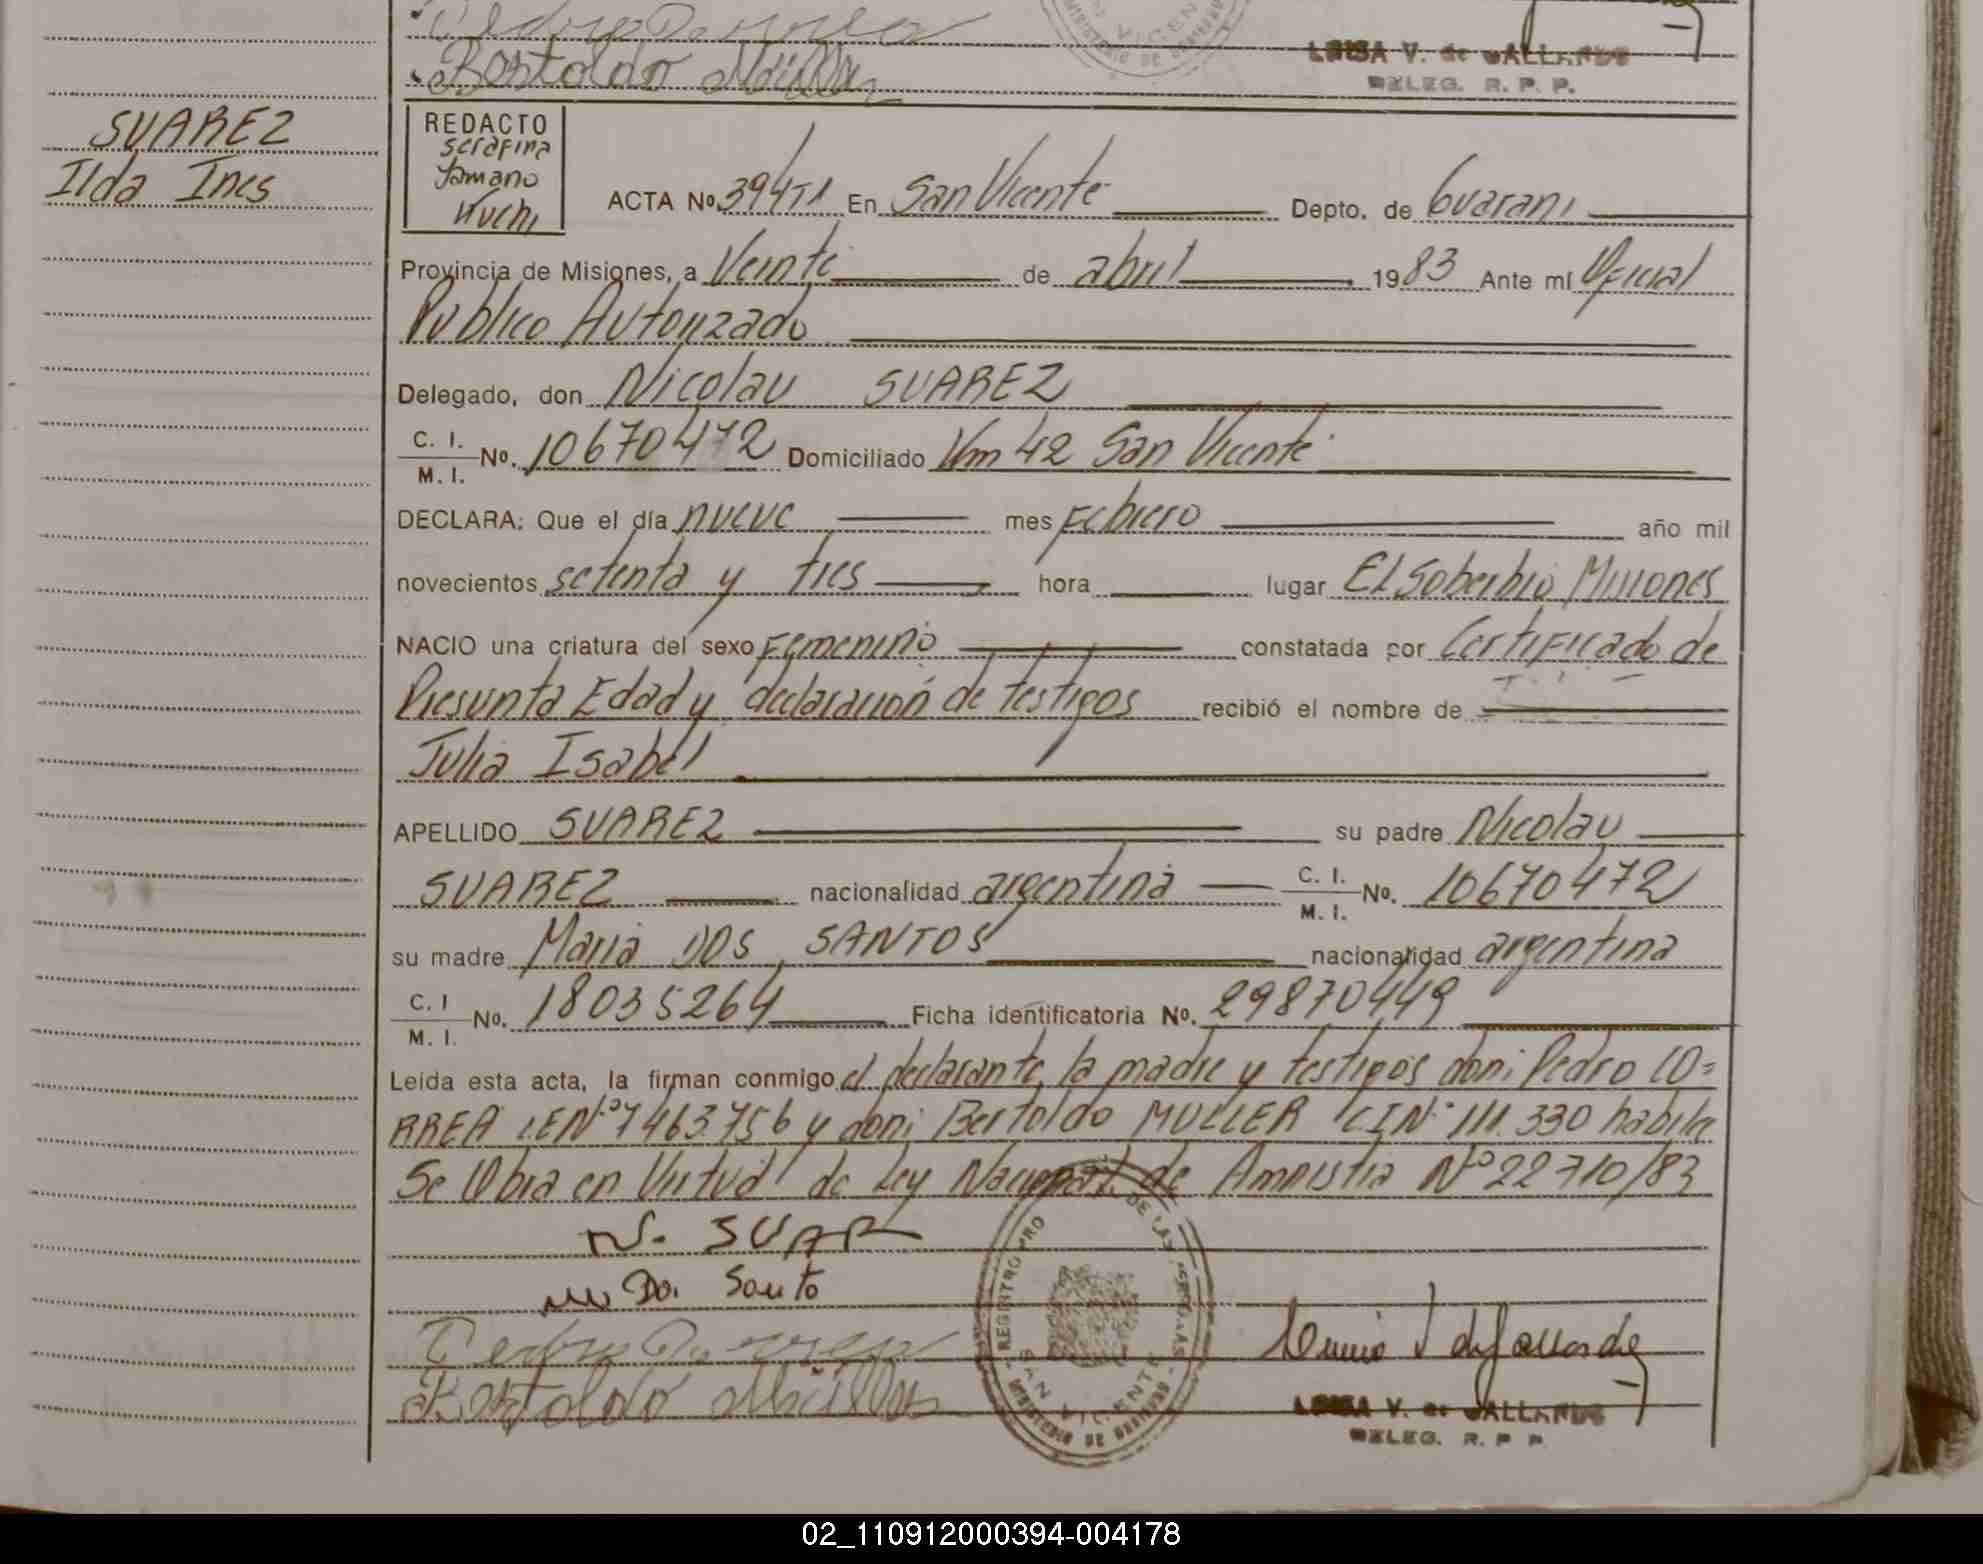 Bertoldo Müller
LUISA V. de GALLARDO
DELEG. R. P. P.
SUAREZ
Ilda Ines
REDACTO
serafina
Tamano
Kuchi
ACTA No. En San Vicente Depto. de Guarani
Provincia de Misiones, a Veinte de abril 1983 Ante mí Oficial
Publico Autorizado
Delegado, don Nicolau SUAREZ
C. I.
M. I. No. 10670472 Domiciliado Km 42 San Vicente
DECLARA: Que el día nueve mes Febrero año mil
novecientos setenta y tres hora lugar El Soberbio Misiones
NACIO una criatura del sexo Femenino constatada por Certificado de
Presunta Edad y declaración de testigos recibió el nombre de
Julia Isabel
APELLIDO SUAREZ su padre Nicolau
SUAREZ nacionalidad argentina C. I.
M. I. No. 10670472
su madre Maria DOS SANTOS nacionalidad argentina
C. I
M. I. No. 18035264 Ficha identificatoria No. 29870449
Leída esta acta, la firman conmigo el declarante, la madre y testigos don: Pedro CO=
RREA LEN:º7463756 y don: Bertoldo MULLER CIN:º111.330 habile
Se Obra en Virtud de Ley Nacional de Amnistia Nº22710/83
N. SUAR
Do. Santo
Bertoldo Müller
REGISTRO PRO DE LAS PERSONAS
SAN VICENTE
MINISTERIO DE GOBIERNO
LUISA V. de GALLARDO
DELEG. R. P P
02_110912000394-004178